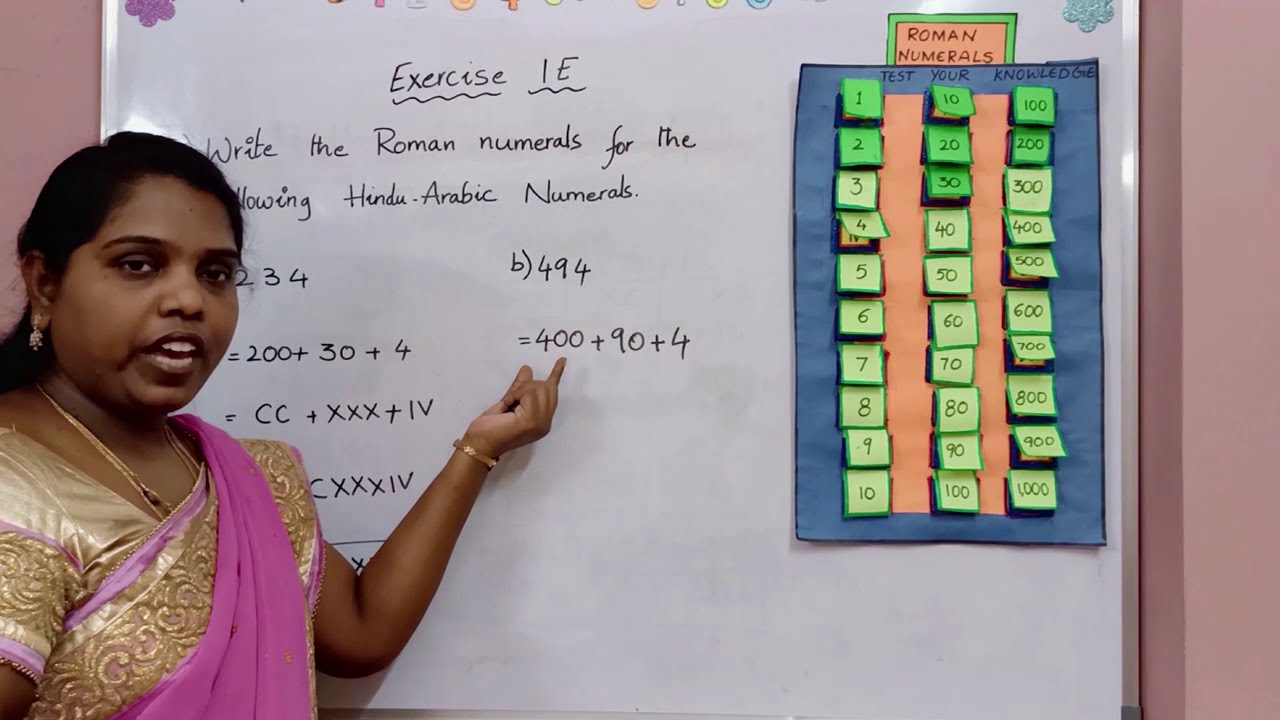 Exercise 1E
Write the Roman numerals for the
llowing Hindu-Arabic Numerals.
2 3 4
= 200+ 30 + 4
= CC + XXX + IV
CXXXIV
b) 494
= 400 + 90 + 4
ROMAN
NUMERALS
TEST YOUR KNOWLEDGE
1 10 100
2 20 200
3 30 300
4 40 400
5 50 500
6 60 600
7 70 700
8 80 800
9 90 900
10 100 1,000